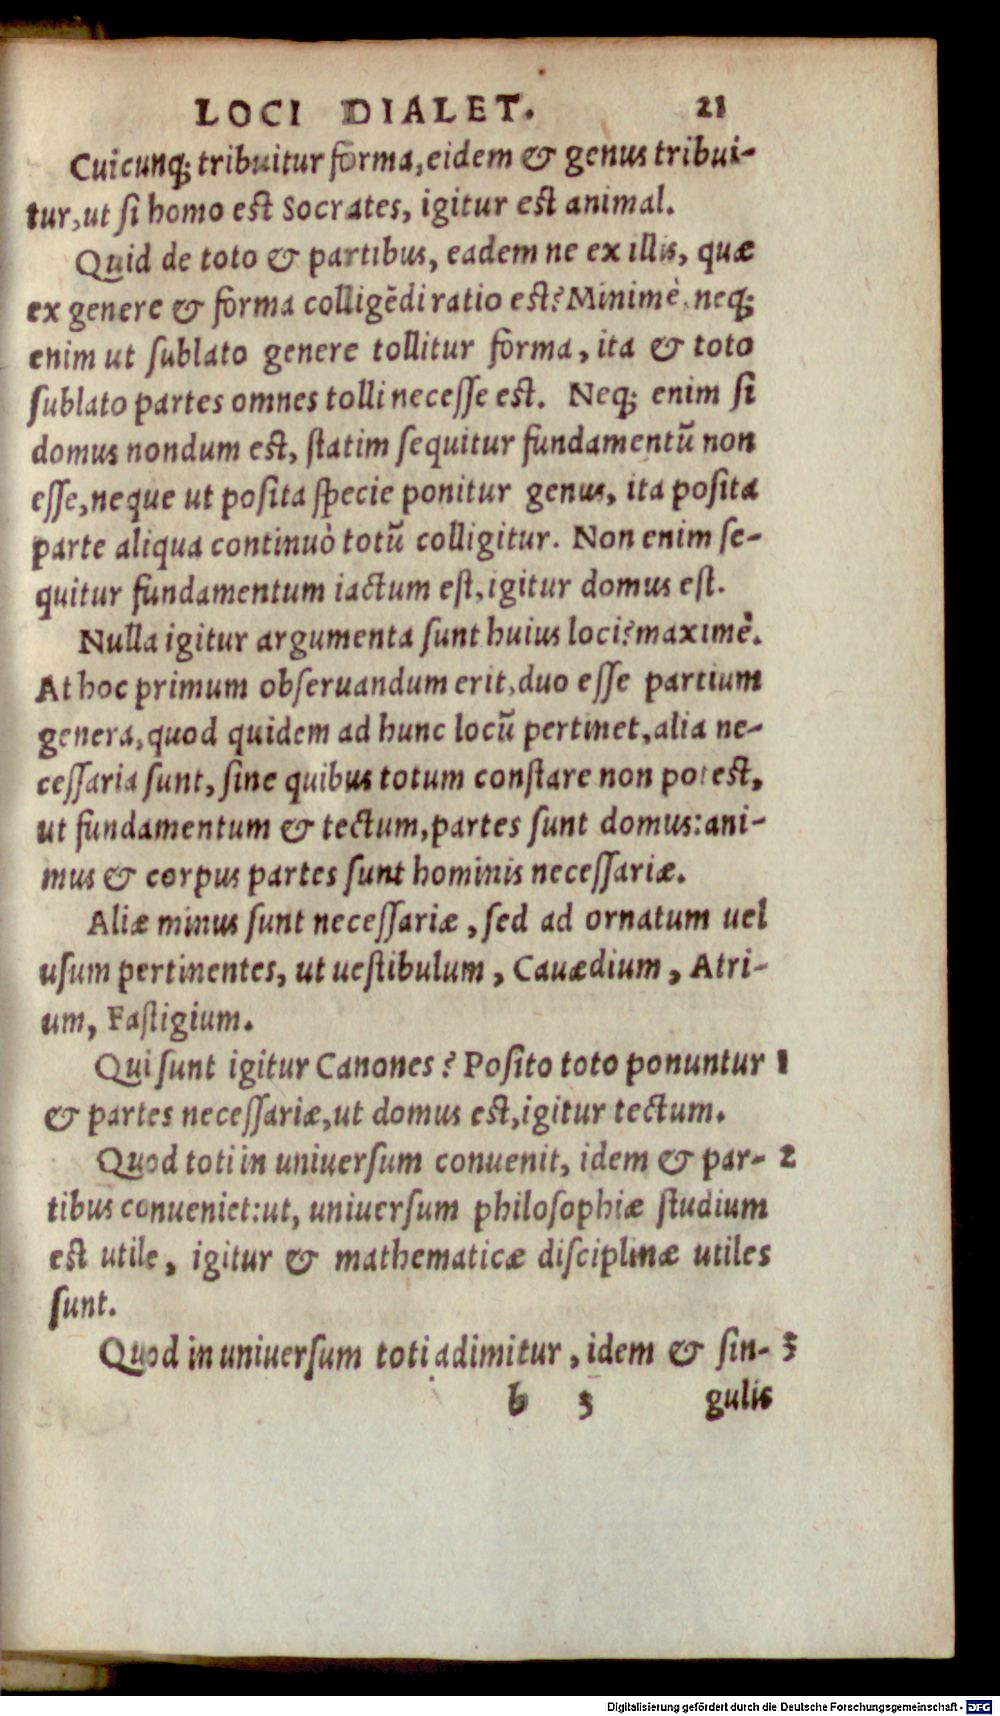 LOCI DIALET. 21
Cuicunq; tribuitur forma, eidem & genus tribui-
tur, ut ſi homo eſt Socrates, igitur eſt animal.
Quid de toto & partibus, eadem ne ex illis, quæ
ex genere & forma colligẽdi ratio eſt? Minimè, neq;
enim ut ſublato genere tollitur forma, ita & toto
ſublato partes omnes tolli neceſſe eſt. Neq; enim ſi
domus nondum eſt, ſtatim ſequitur fundamentũ non
eſſe, neque ut poſita ſpecie ponitur genus, ita poſita
parte aliqua continuò totũ colligitur. Non enim ſe-
quitur fundamentum iactum eſt, igitur domus eſt.
Nulla igitur argumenta ſunt huius loci? maximè.
At hoc primum obſeruandum erit, duo eſſe partium
genera, quod quidem ad hunc locũ pertinet, alia ne-
ceſſaria ſunt, ſine quibus totum conſtare non poteſt,
ut fundamentum & tectum, partes ſunt domus: ani-
mus & corpus partes ſunt hominis neceſſariæ.
Aliæ minus ſunt neceſſariæ, ſed ad ornatum uel
uſum pertinentes, ut ueſtibulum, Cauædium, Atri-
um, Faſtigium.
Qui ſunt igitur Canones? Poſito toto ponuntur 1
& partes neceſſariæ, ut domus eſt, igitur tectum.
Quod toti in uniuerſum conuenit, idem & par- 2
tibus conueniet: ut, uniuerſum philoſophiæ ſtudium
eſt utile, igitur & mathematicæ diſciplinæ utiles
ſunt.
Quod in uniuerſum toti adimitur, idem & ſin- 3
b 3 gulis
Digitalisierung gefördert durch die Deutsche Forschungsgemeinschaft - DFG